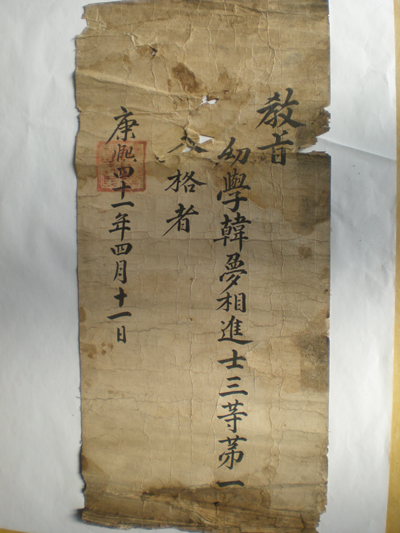 教旨
幼學韓夢相進士三等苐一
入格者
康熙四十一年四月十一日